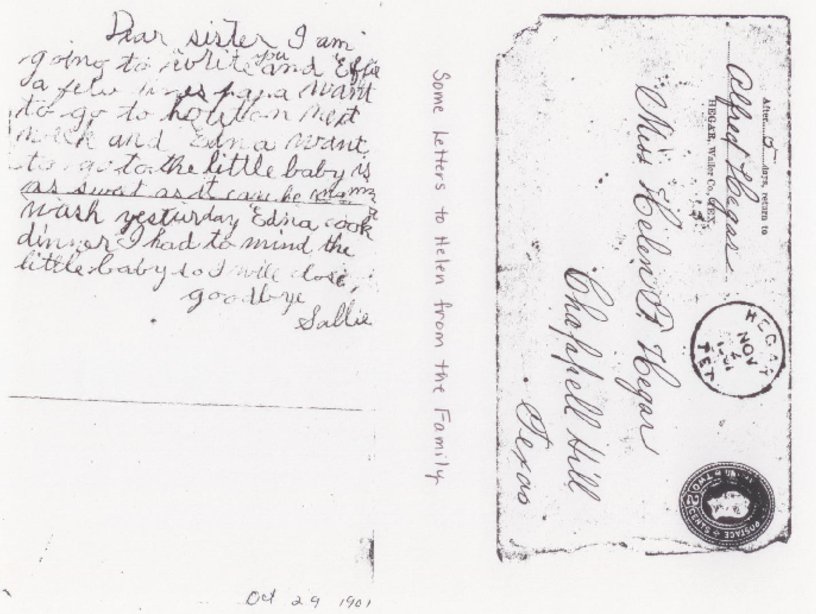 Dear sister I am
going to write you and Effie
a few lines papa want
to go to houston next
week and Edna want
to go to the little baby is
as sweat as it can be mama
wash yesturday Edna cook
dinner I had to mind the
little baby so I will close,
goodbye
Sallie
Oct 29 1901
Some Letters to Helen from the Family
After 5 days, return to
Alfred Hegar
HEGAR, Waller Co., TEX.
Miss Helen F. Hegar
Chappell Hill
Texas
HEGAR
NOV
4
TEX
POSTAGE
TWO 2 CENTS